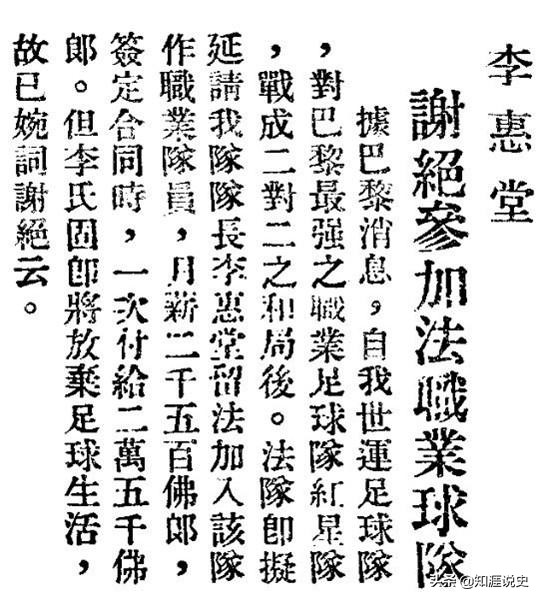 李惠堂
謝絕參加法職業球隊
據巴黎消息，自我世運足球隊
，對巴黎最强之職業足球隊紅星隊
，戰成二對二之和局後。法隊卽擬
延請我隊隊長李惠堂留法加入該隊
作職業隊員，月薪二千五百佛郎，
簽定合同時，一次付給二萬五千佛
郎。但李氏因卽將放棄足球生活，
故已婉詞謝絕云。
头条 @知涯说史